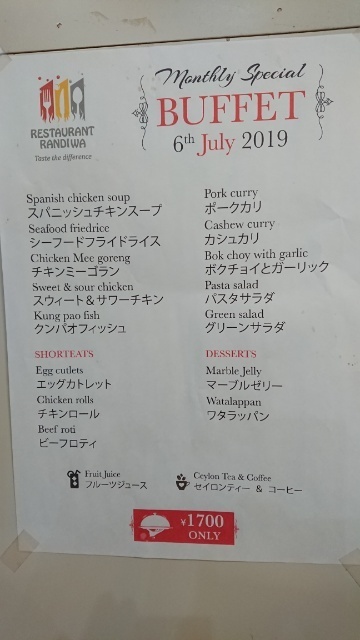 RESTAURANT
RANDIWA
Taste the difference
Monthly Special
BUFFET
6th July 2019
Spanish chicken soup
スパニッシュチキンスープ
Seafood friedrice
シーフードフライドライス
Chicken Mee goreng
チキンミーゴラン
Sweet & sour chicken
スウィート＆サワーチキン
Kung pao fish
クンパオフィッシュ
Pork curry
ポークカリ
Cashew curry
カシュカリ
Bok choy with garlic
ボクチョイとガーリック
Pasta salad
パスタサラダ
Green salad
グリーンサラダ
SHORTEATS
Egg cutlets
エッグカトレット
Chicken rolls
チキンロール
Beef roti
ビーフロティ
DESSERTS
Marble Jelly
マーブルゼリー
Watalappan
ワタラッパン
Fruit Juice
フルーツジュース
Ceylon Tea & Coffee
セイロンティー & コーヒー
¥1700
ONLY